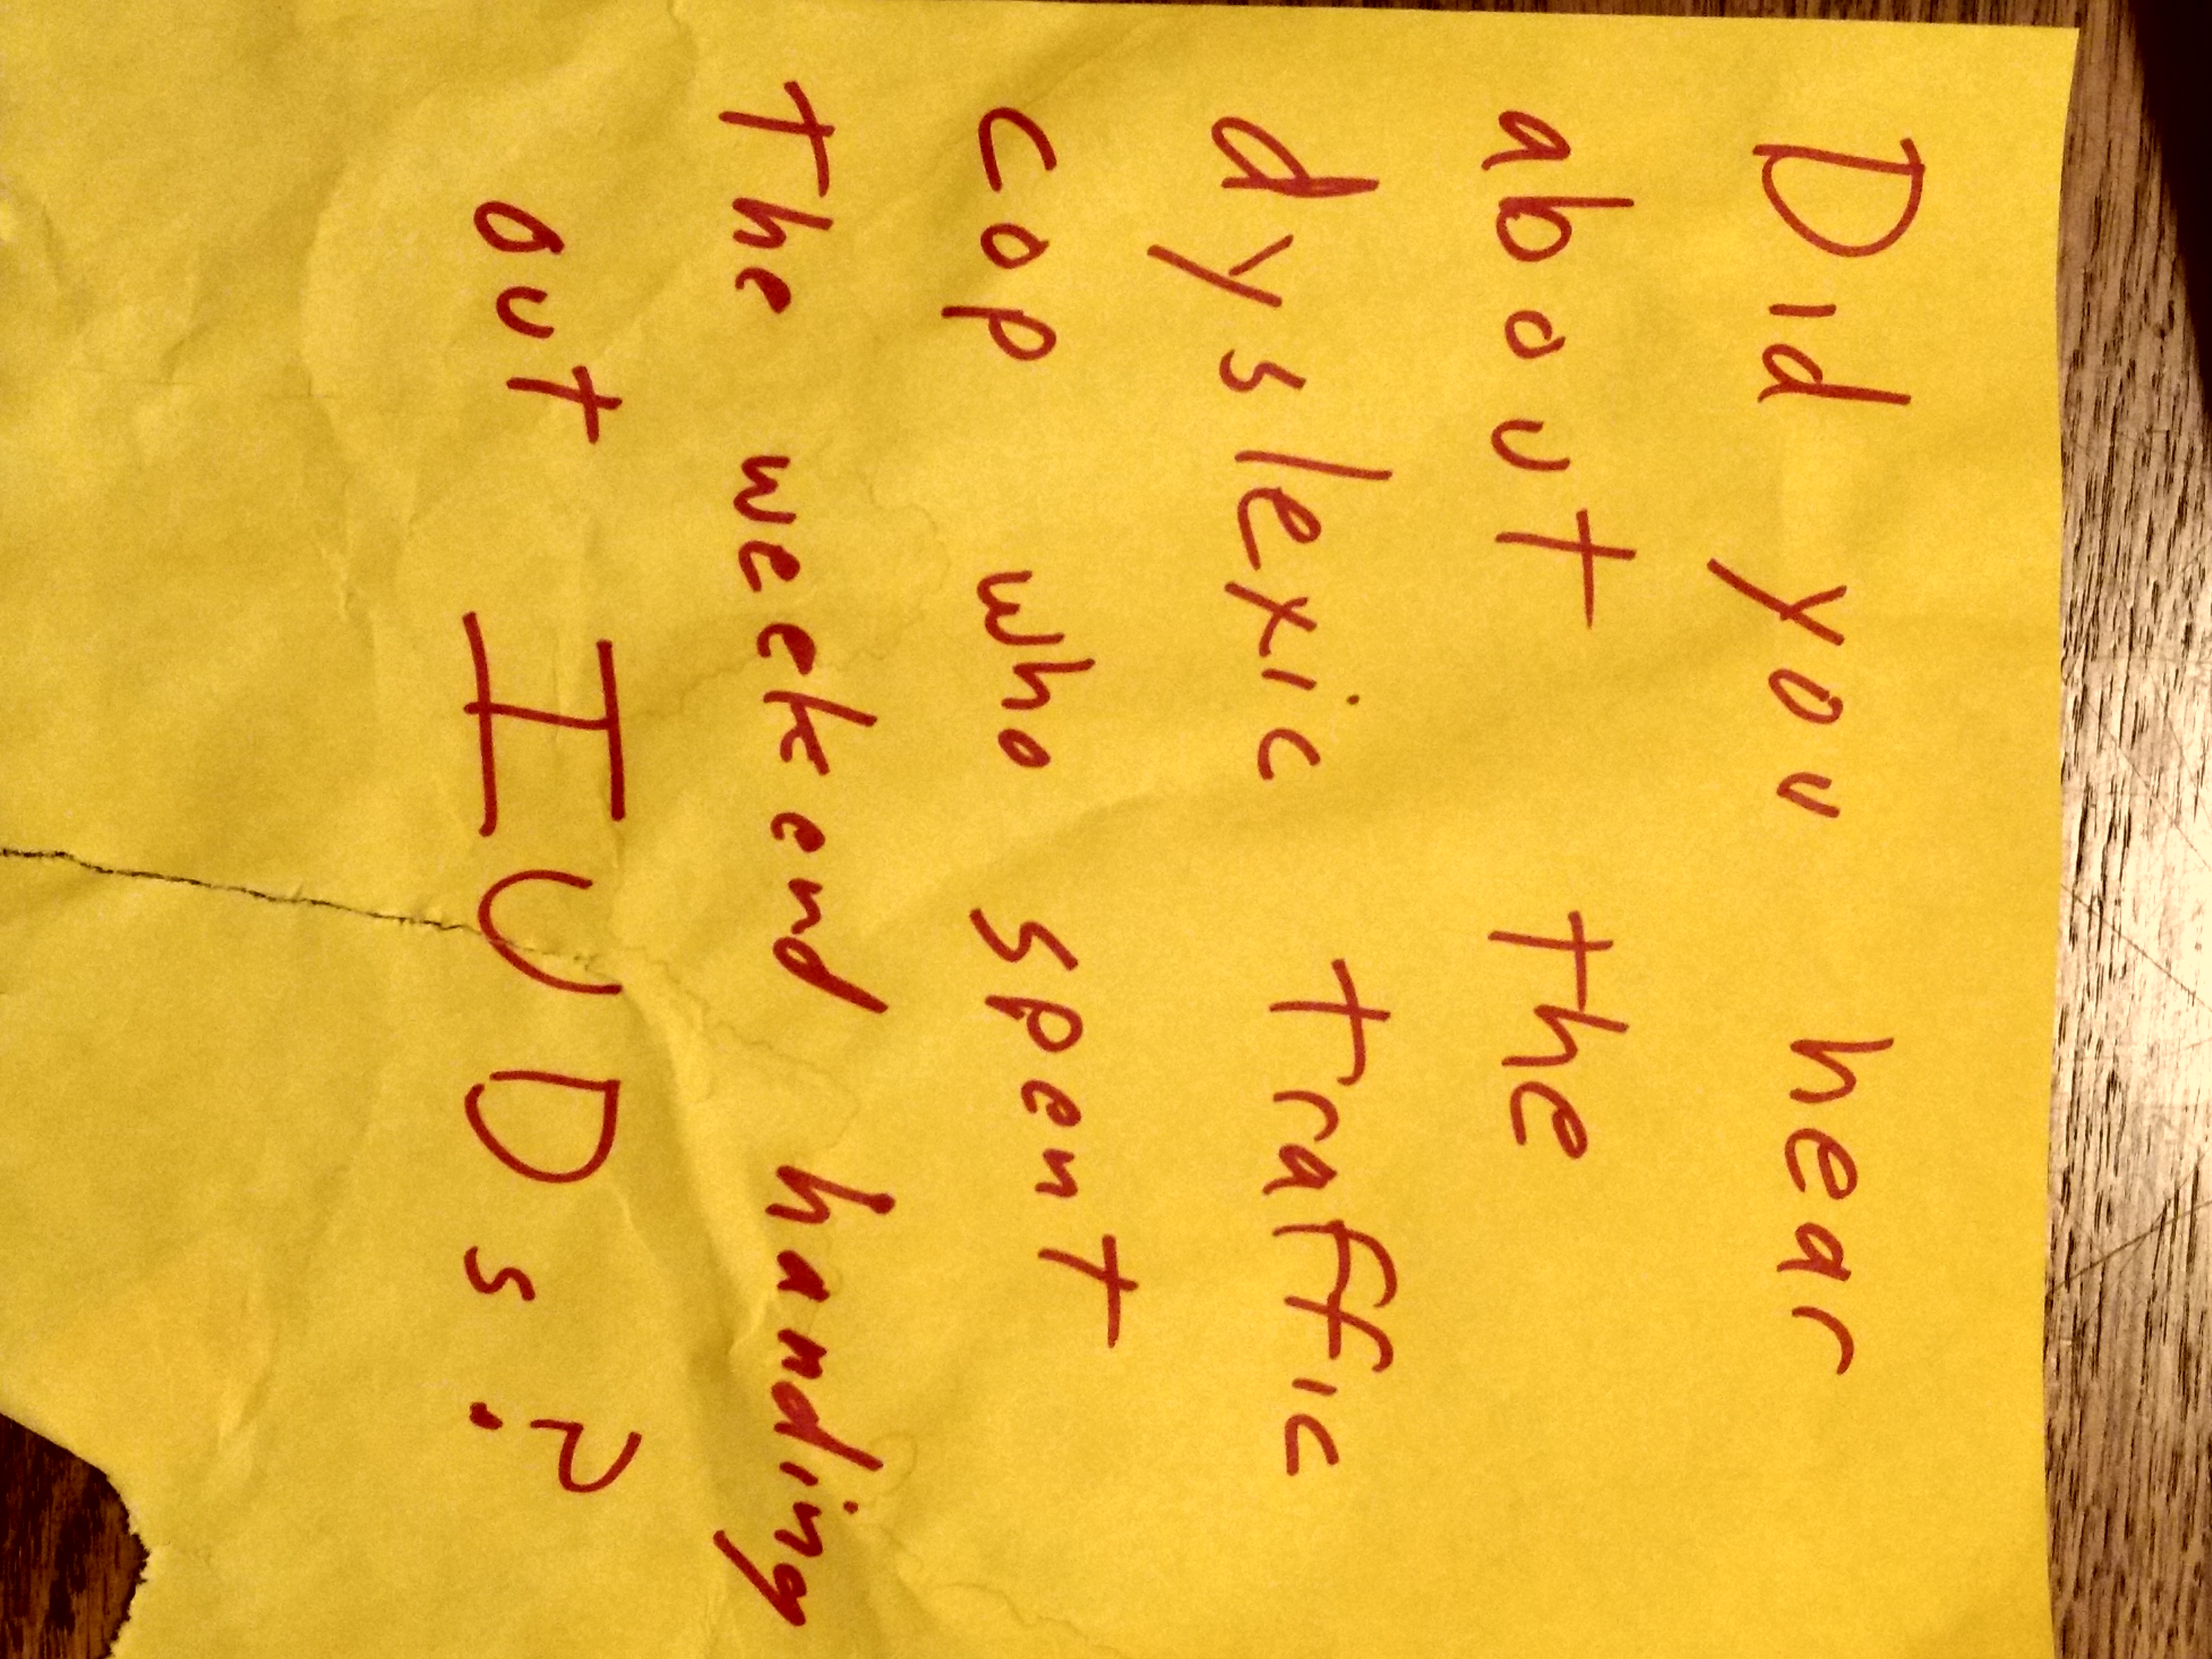 Did you hear
about the
dyslexic traffic
cop who spent
the weekend handing
out IUDs?